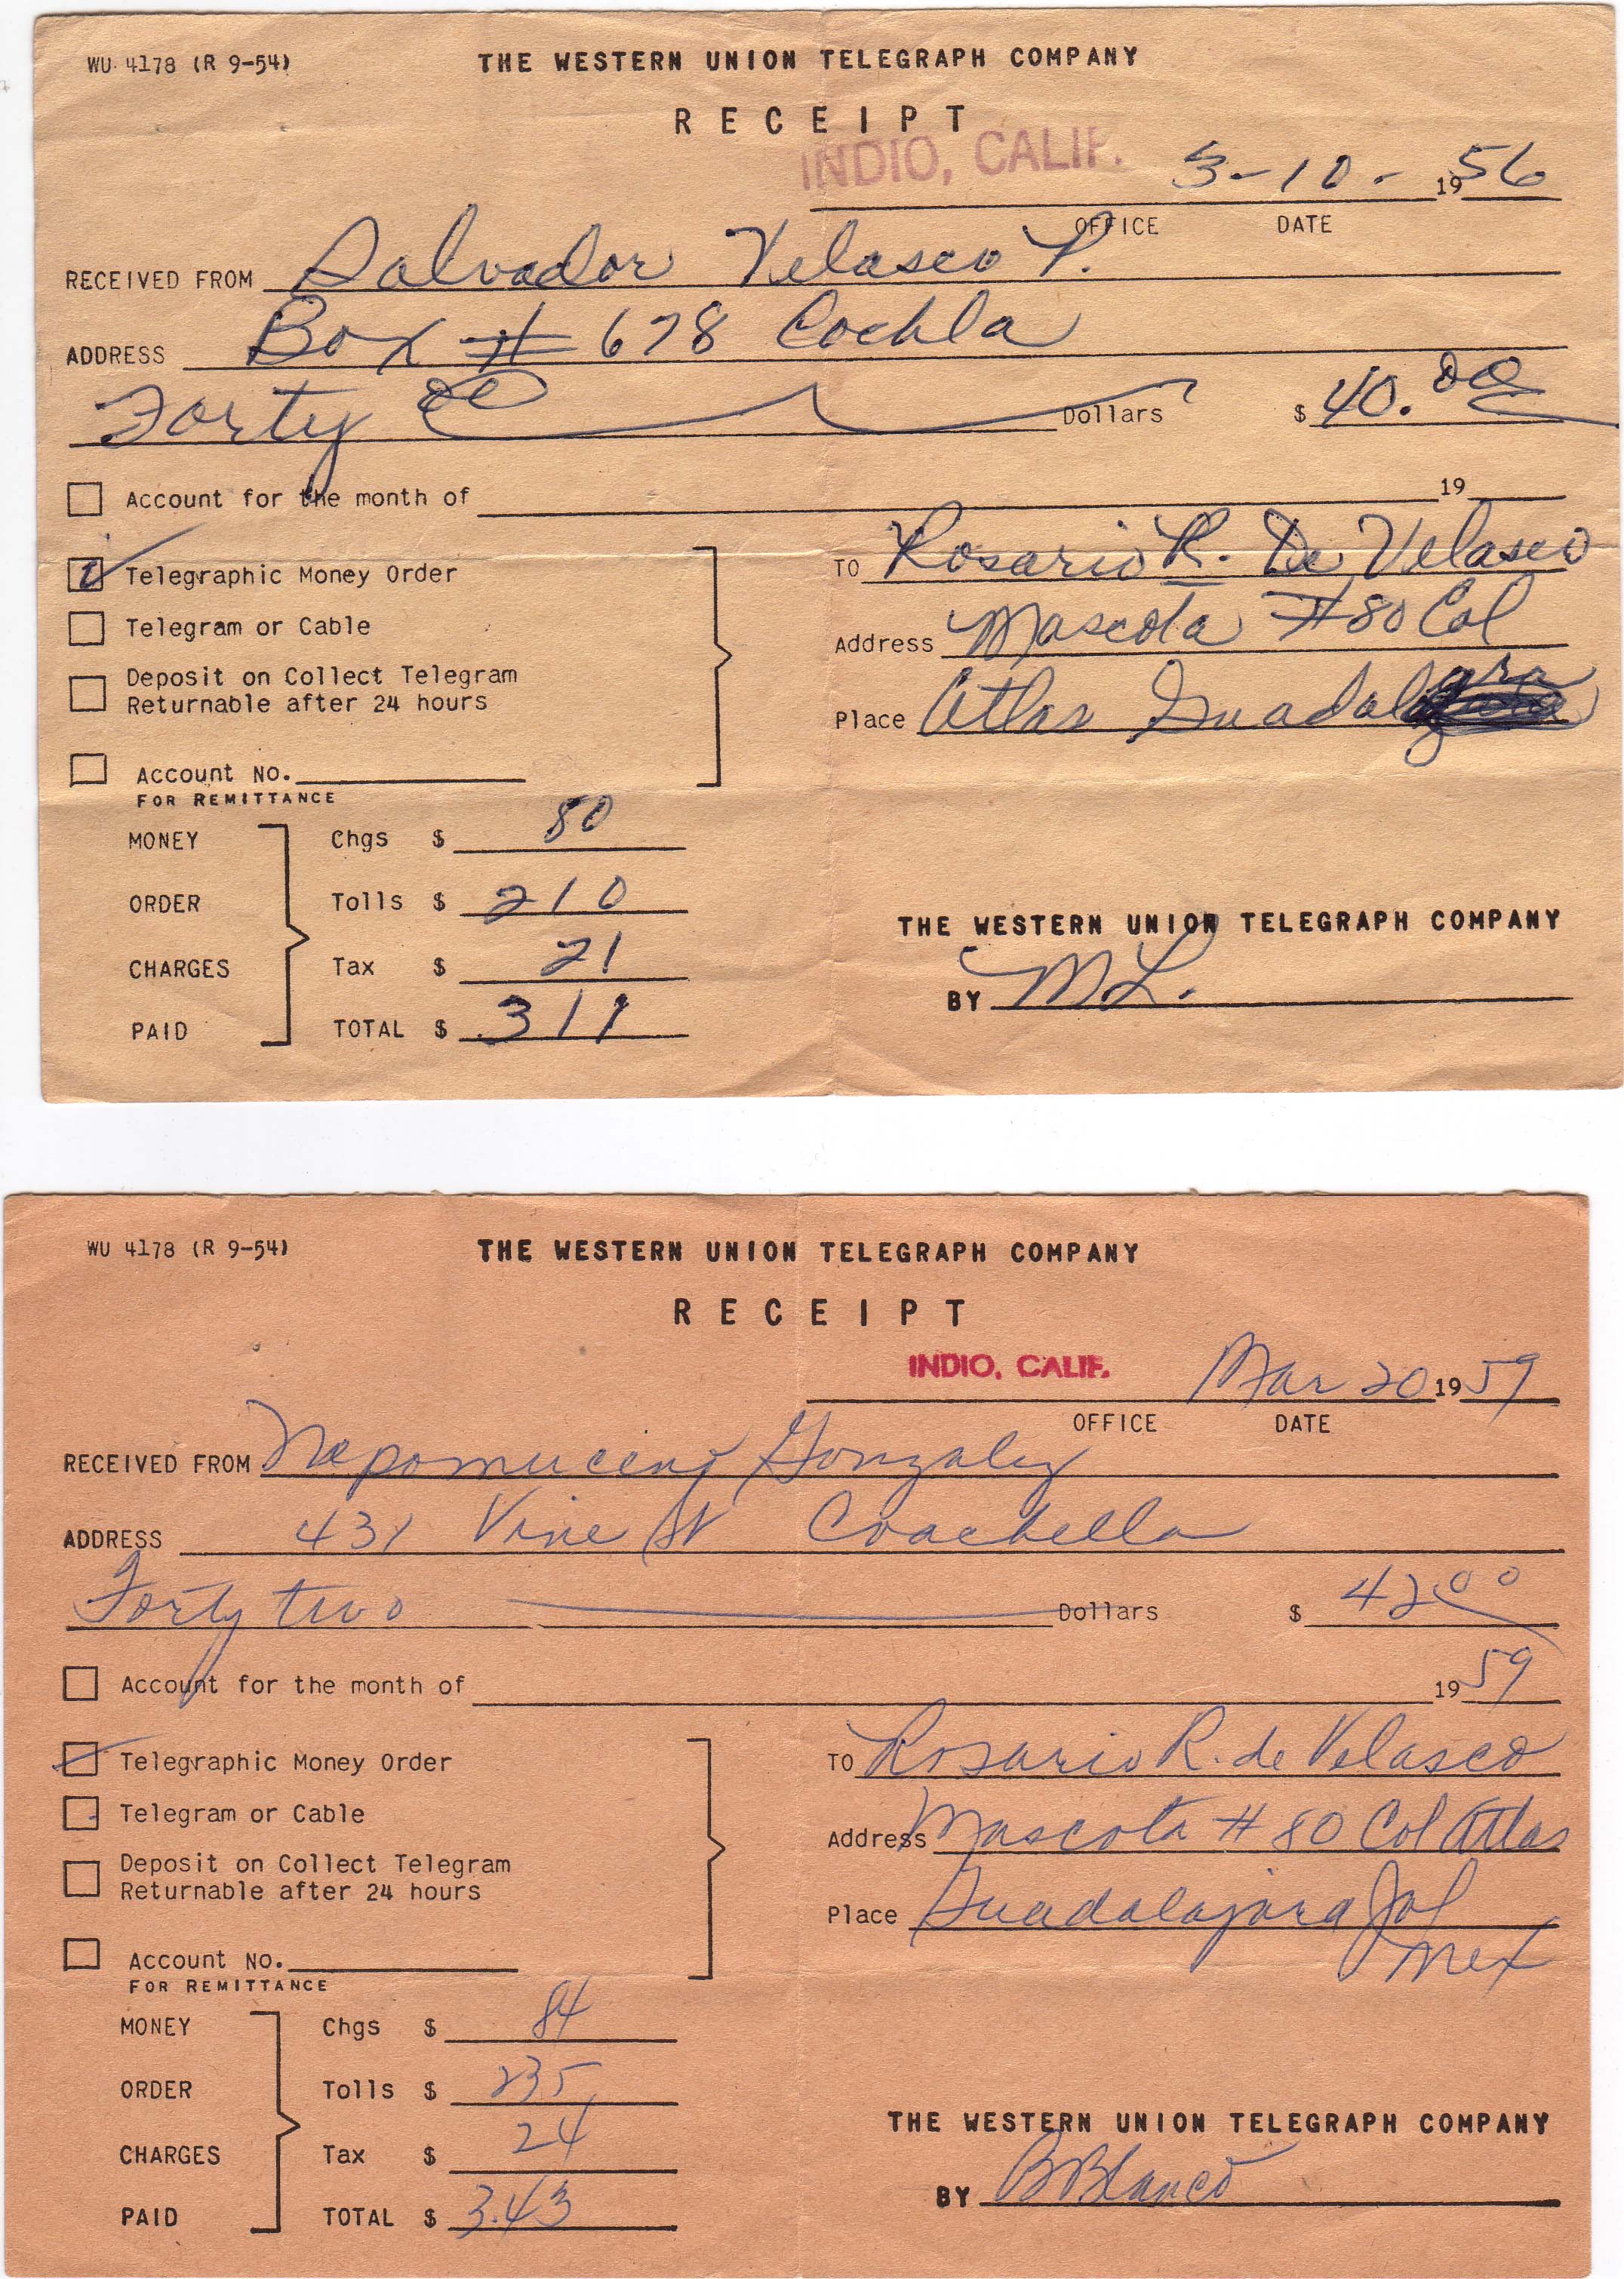 WU 4178 (R 9-54) THE WESTERN UNION TELEGRAPH COMPANY
RECEIPT
INDIO, CALIF. 3-10- 1956
OFFICE DATE
RECEIVED FROM Salvador Velasco P.
ADDRESS Box # 678 Cochla
Forty 00 Dollars $ 40.00
Account for the month of 19
Telegraphic Money Order TO Rosario R. De Velasco
Telegram or Cable
Address Mascota #80 Col
Deposit on Collect Telegram
Returnable after 24 hours
Place Atlas Guadalgara
Account No.
FOR REMITTANCE
MONEY Chgs $ 80
ORDER Tolls $ 210
THE WESTERN UNION TELEGRAPH COMPANY
CHARGES Tax $ 21
BY ML.
PAID TOTAL $ 311
WU 4178 (R 9-54) THE WESTERN UNION TELEGRAPH COMPANY
RECEIPT
INDIO, CALIF. Mar 20 1959
OFFICE DATE
RECEIVED FROM Nepomuceno Gonzalez
ADDRESS 431 Vine St Coachella
Forty two Dollars $ 42 00
Account for the month of 1959
Telegraphic Money Order TO Rosario R. de Velasco
Telegram or Cable
Address Mascota # 80 Col Atlas
Deposit on Collect Telegram
Returnable after 24 hours
Place Guadalajara Jal
Mex
Account No.
FOR REMITTANCE
MONEY Chgs $ 84
ORDER Tolls $ 235
THE WESTERN UNION TELEGRAPH COMPANY
CHARGES Tax $ 24
BY B Blanco
PAID TOTAL $ 3.43